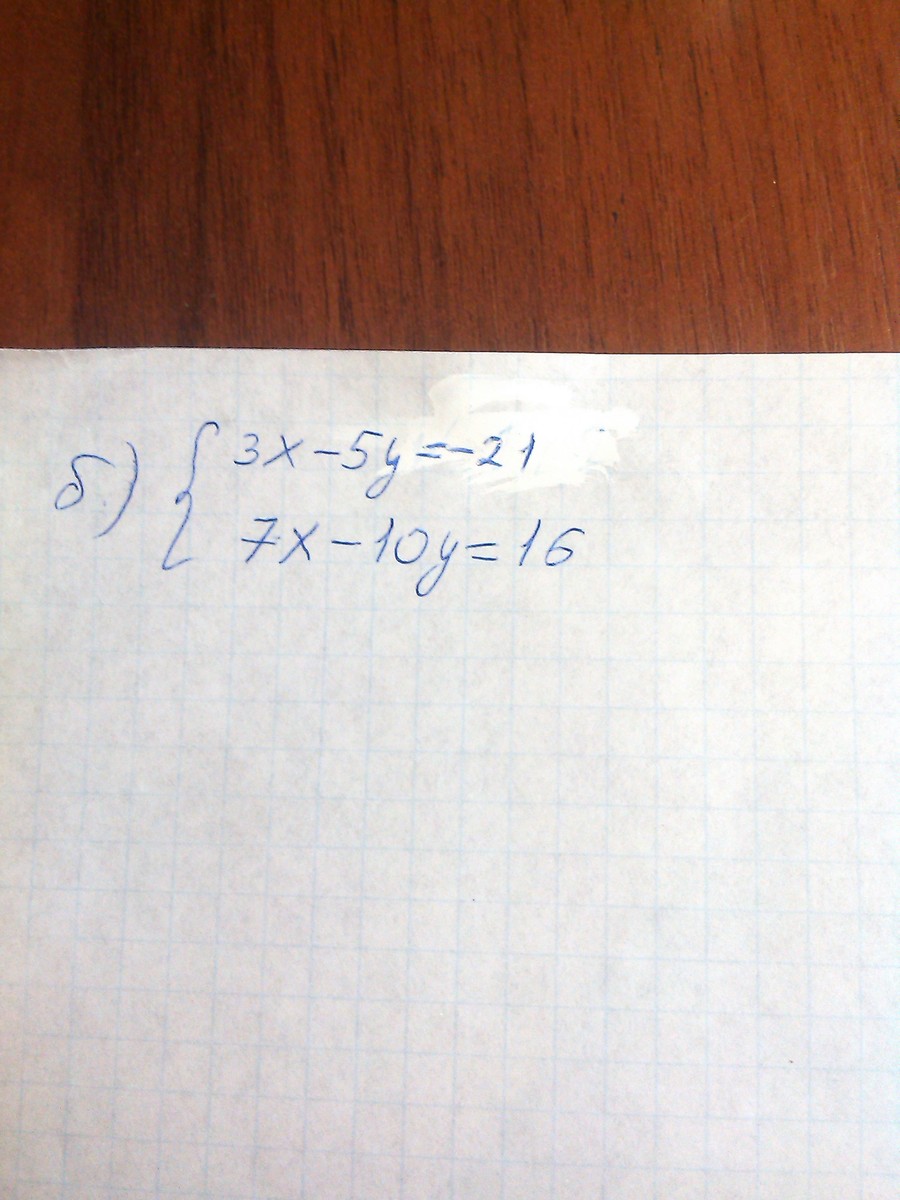 б) { 3x-5y=-21
7x-10y=16